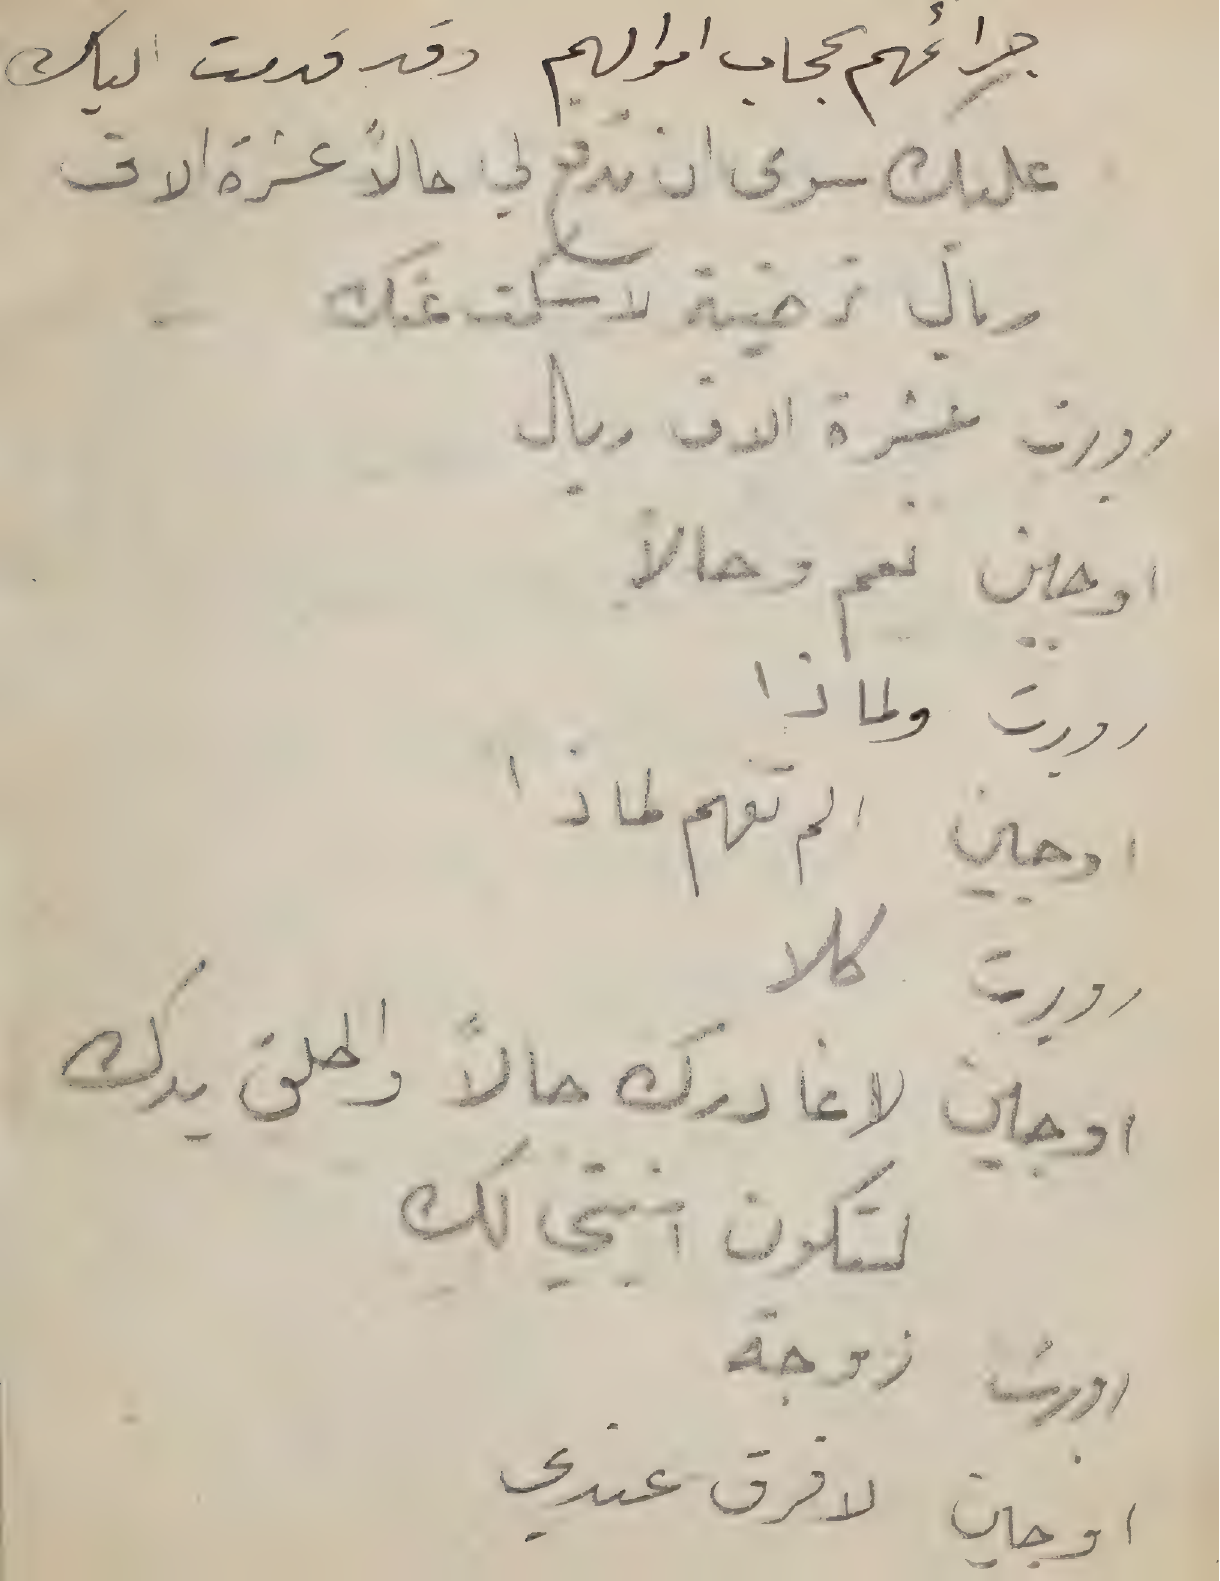 جرائمهم بحجاب اموالهم وقد قدمت اليك
عليك سوى ان تدفع لي حالاً عشرة الاف
ريال ترضية لاسكت عنك
روبرت عشرة الاف ريال
اوجين نعم وحالاً
روبرت ولماذا
اوجين الم تفهم لماذا
روبرت كلا
اوجين لاغادرك حالاً واطلق يدك
لتكون ابنتي لك
روبرت زوجة
اوجين لا فرق عندي